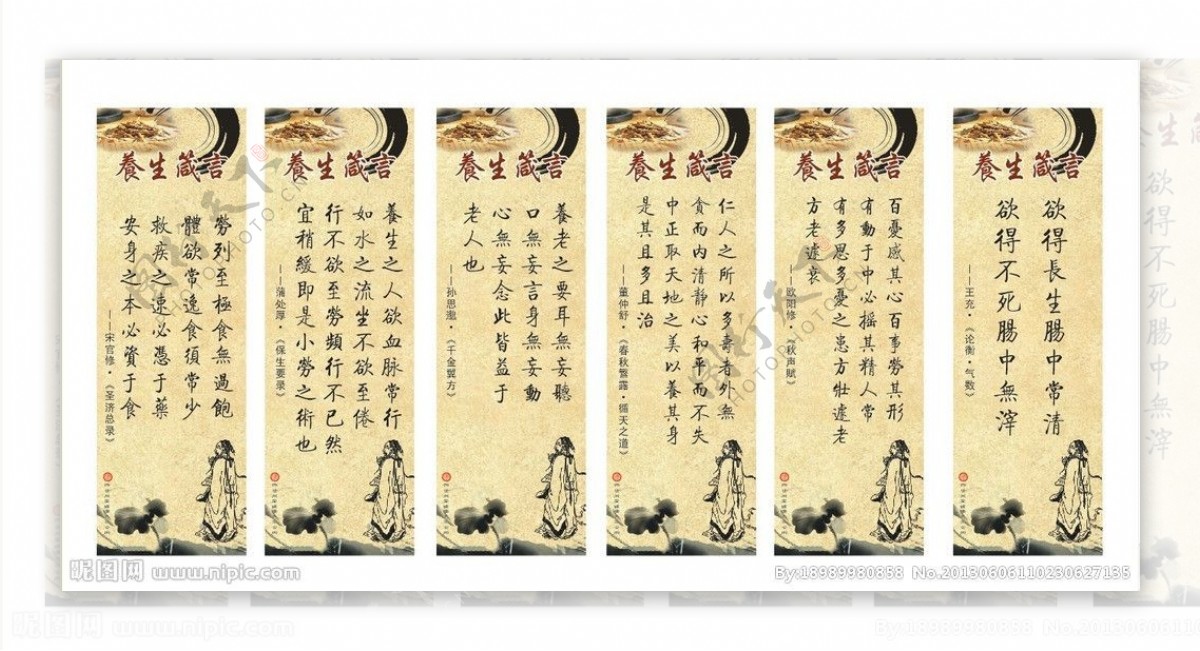 養生箴言
勞列至極食無過飽
體欲常逸食須常少
救疾之速必憑于藥
安身之本必資于食
——宋官修·《圣济总录》
養生箴言
養生之人欲血脉常行
如水之流坐不欲至倦
行不欲至勞頻行不已然
宜稍緩即是小勞之術也
——蒲处厚·《保生要录》
養生箴言
養老之要耳無妄聽
口無妄言身無妄動
心無妄念此皆益于
老人也
——孙思邈·《千金翼方》
養生箴言
仁人之所以多壽者外無
貪而内清靜心和平而不失
中正取天地之美以養其身
是其且多且治
——董仲舒·《春秋繁露·循天之道》
養生箴言
百憂感其心百事勞其形
有動于中必搖其精人常
有多思多憂之患方壯遽老
方老遽衰
——欧阳修·《秋声赋》
養生箴言
欲得長生腸中常清
欲得不死腸中無滓
——王充·《论衡·气数》
昵图网 www.nipic.com
By:18989980858 No.20130606110230627135